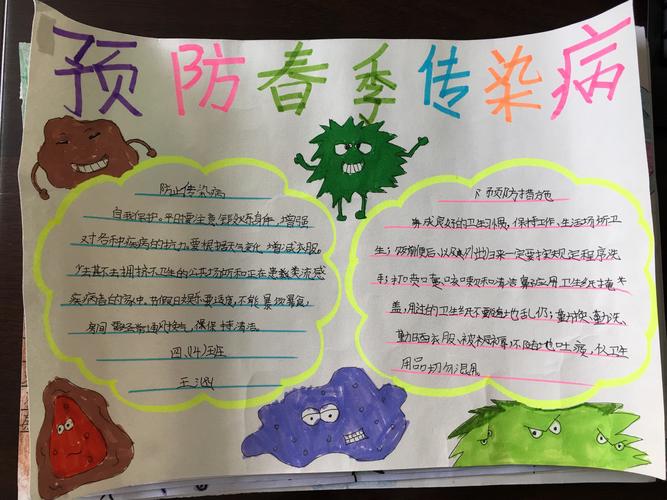 预防春季传染病
防止传染病
自我保护。平时要注意锻炼身体,增强
对各种疾病的抗力。要根据天气变化,增减衣服。
少去或不去拥挤不卫生的公共场所和正在患流感
疾病者的家中,节假日娱乐要适度,不能暴饮暴食,
房间要经常通风换气,保持清洁。
四.(4)班
王
预防措施
养成良好的卫生习惯,保持工作、生活场所卫
生;饭前便后、以及外出归来一定要按规定程序洗
手,打喷嚏、咳嗽和清洁鼻子应用卫生纸掩
盖,用过的卫生纸不要随地乱扔;勤换、勤洗、
勤晒衣服、被褥,不随地吐痰,个人卫生
用品切勿混用